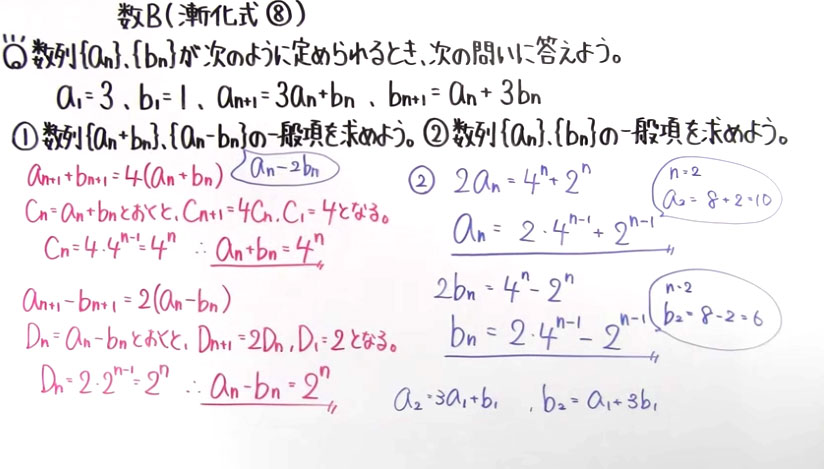 数B(漸化式⑧)
数列{an}、{bn}が次のように定められるとき、次の問いに答えよう。
a₁=3、b₁=1、an+1=3an+bn、bn+1=an+3bn
①数列{an+bn}、{an-bn}の一般項を求めよう。②数列{an}、{bn}の一般項を求めよう。
an+1+bn+1=4(an+bn)
an-2bn
Cn=an+bnとおくと、Cn+1=4Cn、C₁=4となる。
Cn=4・4ⁿ⁻¹=4ⁿ ∴an+bn=4ⁿ
an+1-bn+1=2(an-bn)
Dn=an-bnとおくと、Dn+1=2Dn、D₁=2となる。
Dn=2・2ⁿ⁻¹=2ⁿ ∴an-bn=2ⁿ
② 2an=4ⁿ+2ⁿ
an=2・4ⁿ⁻¹+2ⁿ⁻¹
n=2
a₂=8+2=10
2bn=4ⁿ-2ⁿ
bn=2・4ⁿ⁻¹-2ⁿ⁻¹
n=2
b₂=8-2=6
a₂=3a₁+b₁、b₂=a₁+3b₁